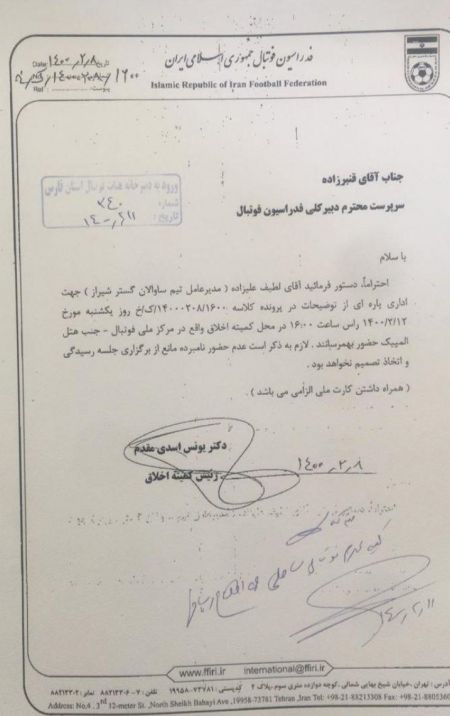 فدراسیون فوتبال جمهوری اسلامی ایران
Islamic Republic of Iran Football Federation
Date
تاریخ ۱۴۰۰/۲/۸
Ref
پیوست
ورود به دبیرخانه هیات فوتبال استان فارس
شماره: ۲۴۰
تاریخ:
جناب آقای قنبرزاده
سرپرست محترم دبیر کلی فدراسیون فوتبال
با سلام
احتراماً، دستور فرمائید آقای لطیف علیزاده ( مدیرعامل تیم ساوالان گستر شیراز ) جهت
اداری پاره ای از توضیحات در پرونده کلاسه ۱۴۰۰۰۲۰۸/۱۶۰۰/ک/خ روز یکشنبه مورخ
۱۴۰۰/۲/۱۲ راس ساعت ۱۶:۰۰ در محل کمیته اخلاق واقع در مرکز ملی فوتبال - جنب هتل
المپیک حضور بهمرسانند . لازم به ذکر است عدم حضور نامبرده مانع از برگزاری جلسه رسیدگی
و اتخاذ تصمیم نخواهد بود .
( همراه داشتن کارت ملی الزامی می باشد ) .
دکتر یونس اسدی مقدم
رئیس کمیته اخلاق
۱۴۰۰/۲/۸
www.ffiri.ir international@ffiri.ir
آدرس : تهران ،خیابان شیخ بهایی شمالی ،کوچه دوازده متری سوم ،پلاک ۴ کدپستی : ۷۳۷۸۱-۱۹۹۵۸ تلفن : ۷-۸۸۲۱۳۳۰۶ نمابر : ۸۸۲۱۳۳۰۲
Address: No.4 . 3rd 12-meter St. ,North Sheikh Bahayi Ave ,19958-73781 Tehran ,Iran Tel: +98-21-88213308 Fax: +98-21-8805360